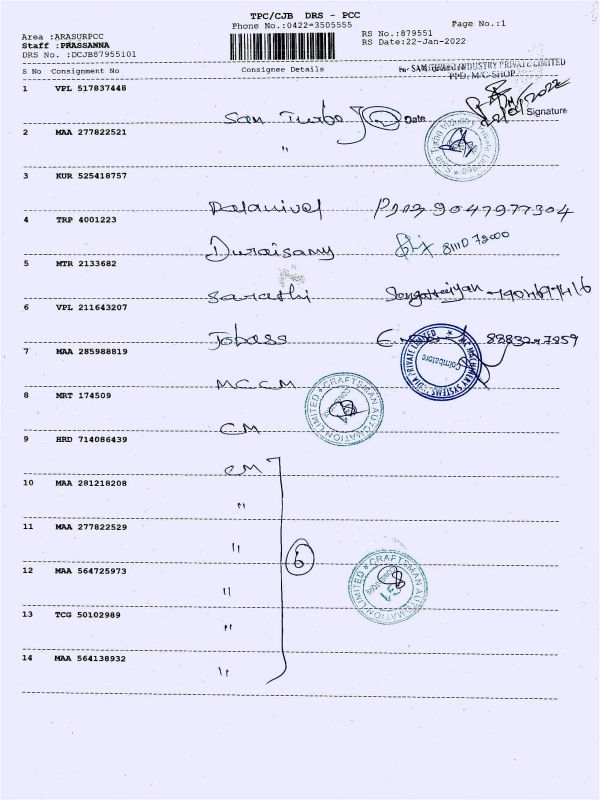 TPC/CJB DRS - PCC
Phone No.:0422-3505555
Page No.:1
Area :ARASURPCC
RS No.:879551
Staff :PRASSANNA
RS Date:22-Jan-2022
DRS No. :DCJB87955101
S No Consignment No Consignee Details
INDUSTRY PRIVATE LIMITED
PPD, M/C SHOP
1 VPL 517837448
San Turbo Date Signature
2 MAA 277822521
"
3 KUR 525418757
Palanivel 9047977304
4 TRP 4001223
Duraisamy
5 MTR 2133682
Sarathi
6 VPL 211643207
Jobass
7 MAA 285988819
Coimbatore
MCCM
8 MRT 174509
CRAFTSMAN AUTOMATION LIMITED
CM
9 HRD 714086439
CM
10 MAA 281218208
"
11 MAA 277822529
"
6
12 MAA 564725973
CRAFTSMAN AUTOMATION LIMITED
"
13 TCG 50102989
"
14 MAA 564138932
"